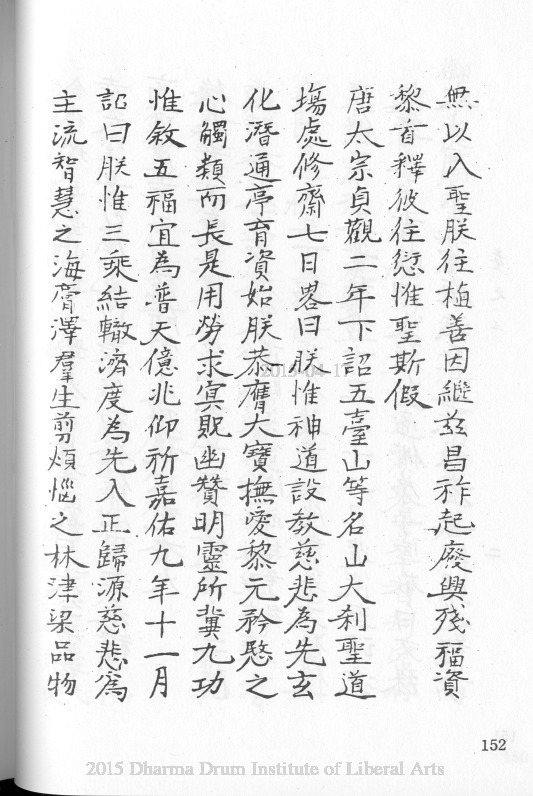 無以入聖朕往植善因繼玆昌祚起廢興殘福資
黎首釋彼往愆惟聖斯假
唐太宗貞觀二年下詔五臺山等名山大刹聖道
塲處修齋七日畧曰朕惟神道設教慈悲為先玄
化潛通亭育資始朕恭膺大寶撫愛黎元矜愍之
心觸類而長是用勞求冥貺幽贊明靈所冀九功
惟敘五福宜為普天億兆仰祈嘉佑九年十一月
詔曰朕惟三乘結轍濟度為先入正歸源慈悲為
主流智慧之海膏澤羣生剪煩惱之林津梁品物
152
2015 Dharma Drum Institute of Liberal Arts